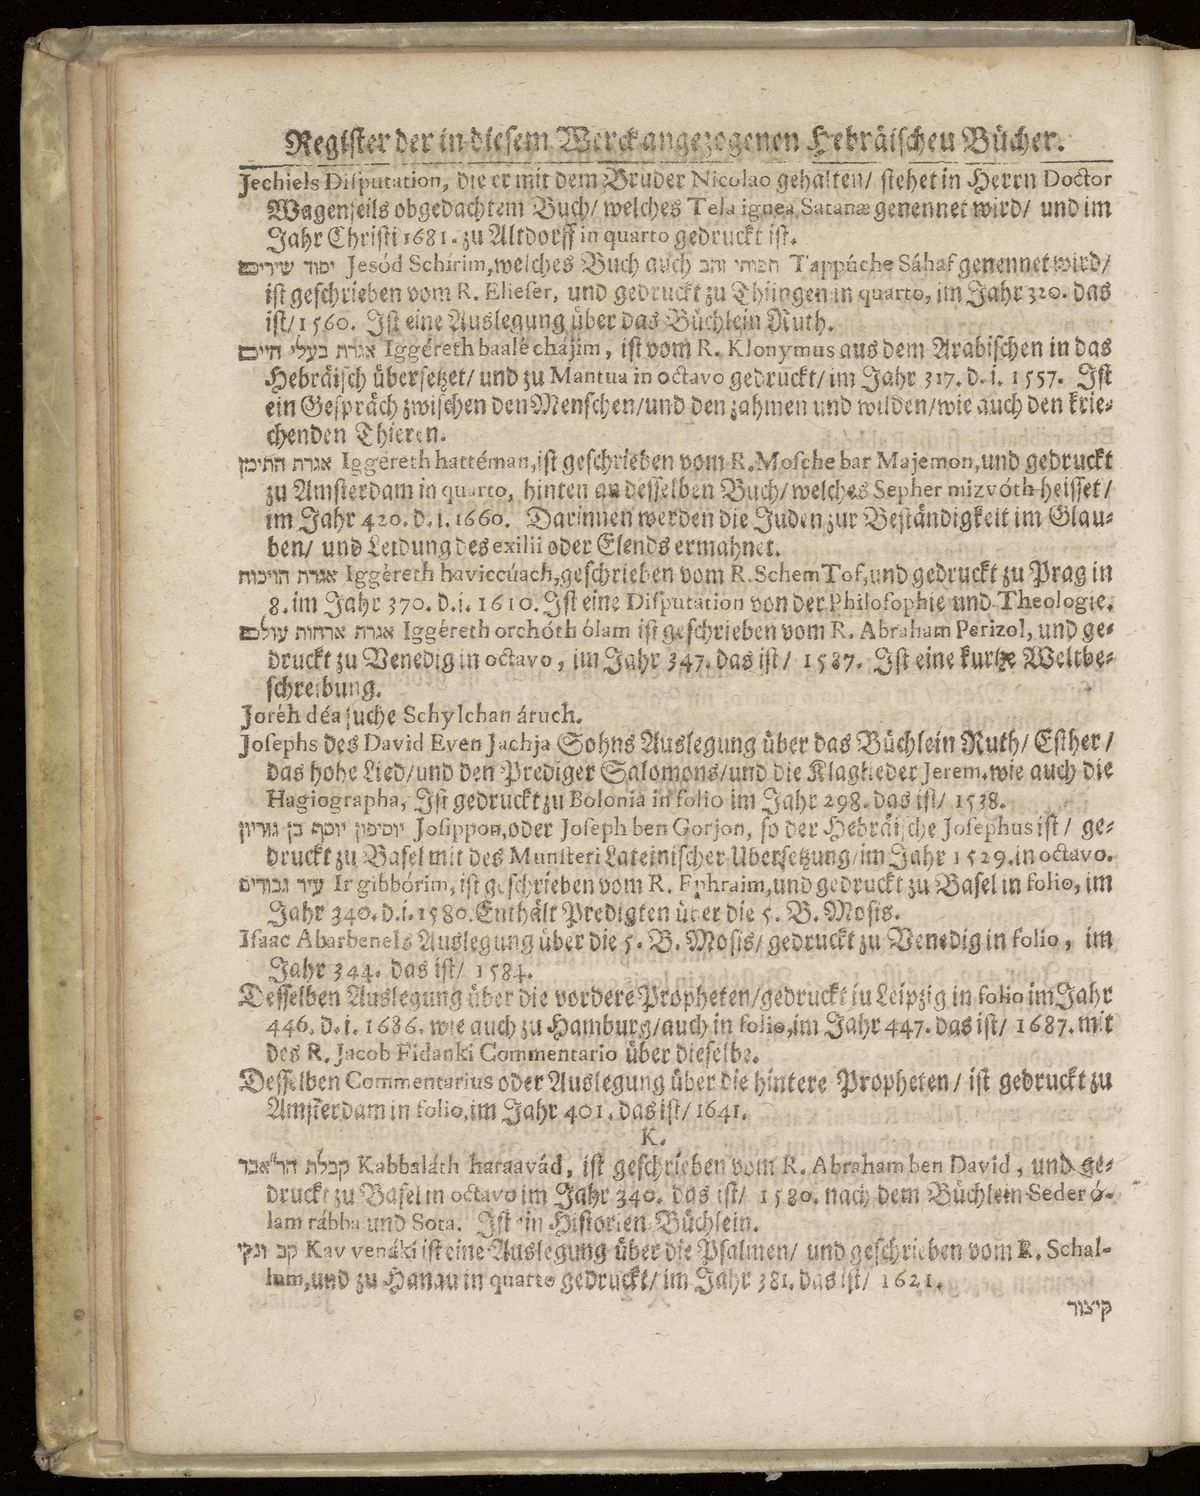 Register der in diesem Werck angezogenen Hebräischeu Bücher.
Jechiels Disputation, die er mit dem Bruder Nicolao gehalten/ stehet in Herrn Doctor
Wagenseils obgedachtem Buch/ welches Tela ignea Satanæ genennet wird/ und im
Jahr Christi 1681. zu Altdorff in quarto gedruckt ist.
יסוד שירים Jesód Schírim, welches Buch auch תפוחי זהב Tappúche Sáhaf genennet wird/
ist geschrieben vom R. Elieser, und gedruckt zu Thiingen in quarto, im Jahr 320. das
ist/ 1560. Ist eine Auslegung über das Büchlein Ruth.
אגרת בעלי חיים Iggéreth baalé chájim, ist vom R. Klonymus aus dem Arabischen in das
Hebräisch übersetzet/ und zu Mantua in octavo gedruckt/ im Jahr 317. d. i. 1557. Ist
ein Gespräch zwischen den Menschen/ und den zahmen und wilden/ wie auch den krie-
chenden Thieren.
אגרת התימן Iggéreth hattéman, ist geschrieben vom R. Mosche bar Majemon, und gedruckt
zu Amsterdam in quarto, hinten an desselben Buch/ welches Sepher mizvóth heisset/
im Jahr 420. d. i. 1660. Darinnen werden die Juden zur Beständigkeit im Glau-
ben/ und Leidung des exilii oder Elends ermahnet.
אגרת הויכוח Iggéreth haviccúach, geschrieben vom R. Schem Tof, und gedruckt zu Prag in
8. im Jahr 370. d. i. 1610. Ist eine Disputation von der Philosophie und Theologie.
אגרת ארחות עולם Iggéreth orchóth ólam ist geschrieben vom R. Abraham Perizol, und ge-
druckt zu Venedig in octavo, im Jahr 347. das ist/ 1587. Ist eine kurtze Weltbe-
schreibung.
Joréh déa suche Schylchan áruch.
Josephs des David Even Jachja Sohns Auslegung über das Büchlein Ruth/ Esther/
das hohe Lied/ und den Prediger Salomons/ und die Klaglieder Jerem. wie auch die
Hagiographa, Ist gedruckt zu Bolonia in folio im Jahr 298. das ist/ 1538.
יוסיפון יוסף בן גוריון Josippon, oder Joseph ben Gorjon, so der Hebräische Josephus ist/ ge-
druckt zu Basel mit des Munsteri Lateinischer Ubersetzung/ im Jahr 1529. in octavo.
עיר גבורים Ir gibbórim, ist geschrieben vom R. Ephraim, und gedruckt zu Basel in folio, im
Jahr 340. d. i. 1580. Enthält Predigten über die 5. B. Mosis.
Isaac Abarbenels Auslegung über die 5. B. Mosis/ gedruckt zu Venedig in folio, im
Jahr 344. das ist/ 1584.
Desselben Auslegung über die vordere Propheten/ gedruckt iu Leipzig in folio im Jahr
446. d. i. 1686. wie auch zu Hamburg/ auch in folio, im Jahr 447. das ist/ 1687. mit
des R. Jacob Fidanki Commentario über dieselbe.
Desselben Commentarius oder Auslegung über die hintere Propheten/ ist gedruckt zu
Amsterdam in folio, im Jahr 401. das ist/ 1641.
K.
קבלת הר"אבד Kabbaláth haraavád, ist geschrieben vom R. Abraham ben David, und ge-
druckt zu Basel in octavo im Jahr 340. das ist/ 1580. nach dem Büchlein Seder ó-
lam rábba und Sota. Ist ein Historien Büchlein.
קב ונקי Kav venáki ist eine Auslegung über die Psalmen/ und geschrieben vom R. Schal-
lum, und zu Hanau in quarto gedruckt/ im Jahr 381. das ist/ 1621.
קיצור